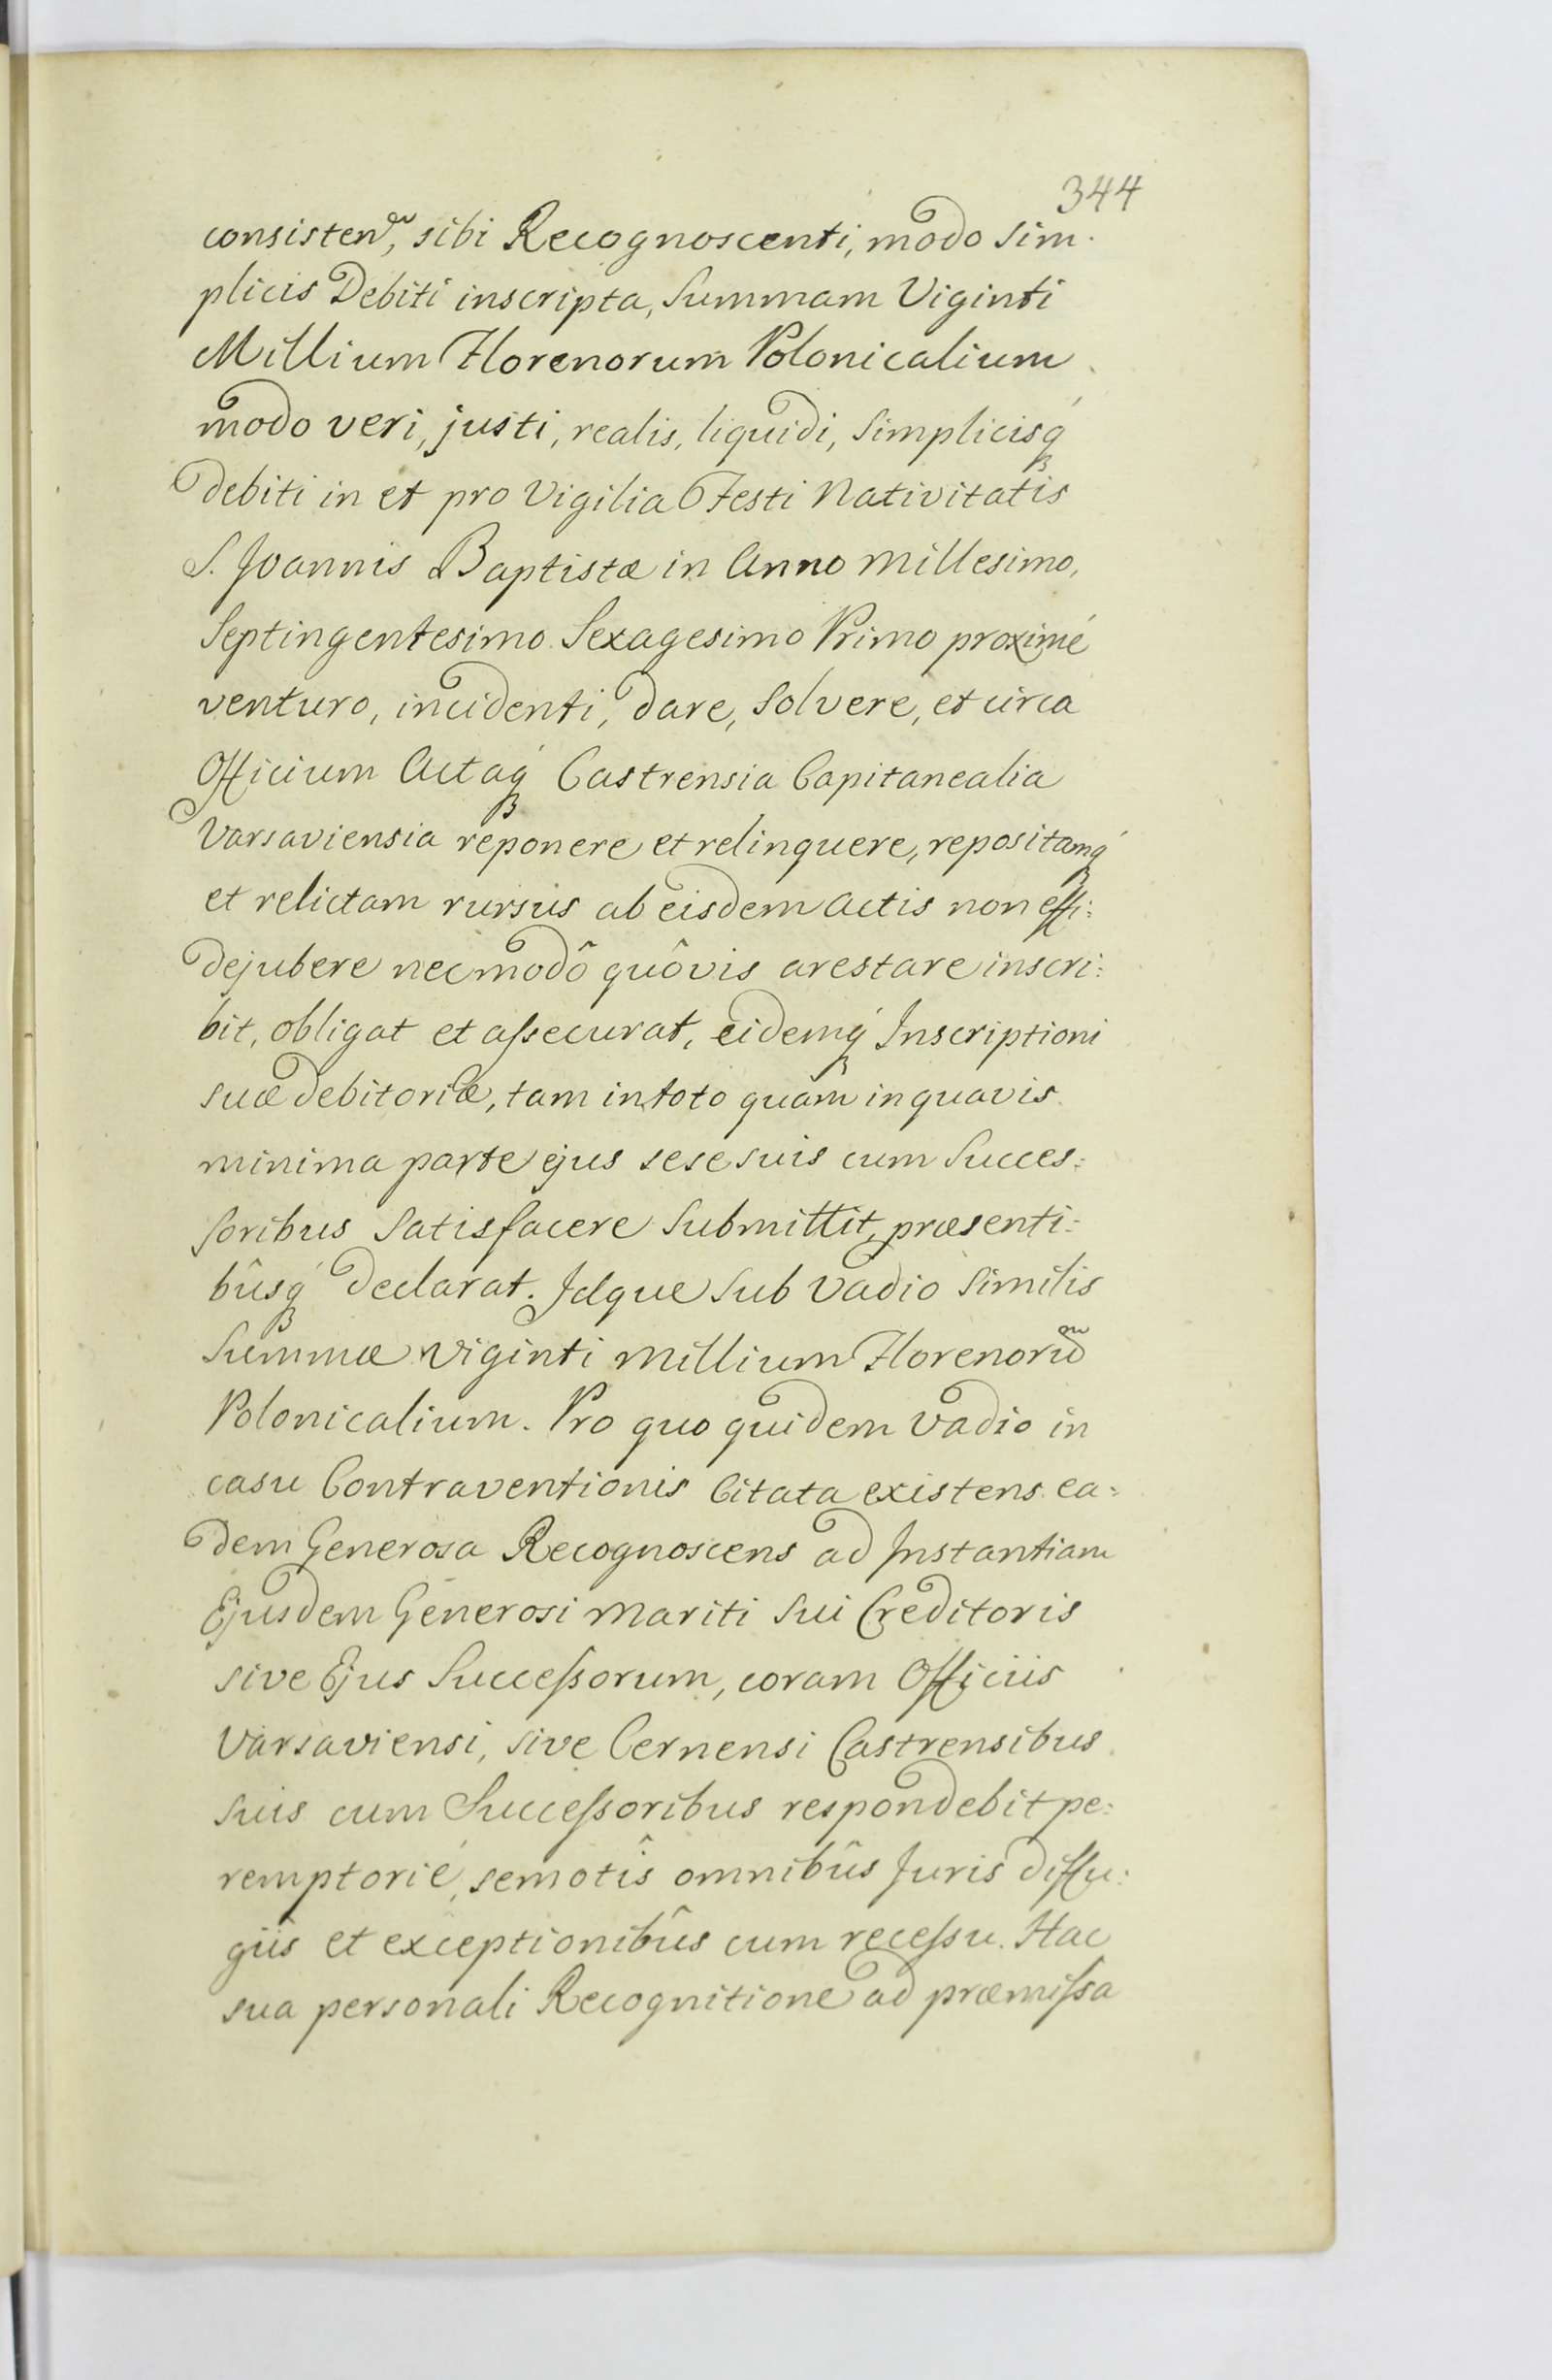 344
consisten, sibi Recognoscenti, modo Sim.
plicis Debiti inscripta, Summam Viginti
Millium Florenorum Polonicalium
modo veri, justi, realis, liquidi, Simplicisq́
debiti in et pro Vigilia Festi Nativitatis
S. Joannis Baptistæ in Anno Millesimo,
Septingentesimo Sexagesimo Primo proximé
venturo, incidenti, dare, Solvere, et circa
Officium Actaq́ Castrensia Capitanealia
Varsaviensia reponere et relinquere, repositamq́
et relictam rursus ab eisdem Actis non effi:
dejubere nec modô quôvis arestare inscri:
bit, obligat et aſsecurat, eidemq́ Inscriptioni
suæ debitoriæ, tam in toto quàm in quavis
minima parte ejus sese suis cum Succes:
soribus Satisfacere Submittit, præsenti:
bûsq́ declarat. Idque Sub Vadio Similis
Summæ Viginti Millium Florenorũ
Polonicalium. Pro quo quidem Vadio in
casu Contraventionis Citata existens ea:
dem Generosa Recognoscens ad Instantiam
Ejusdem Generosi Mariti Sui Creditoris
sive Ejus Succeſsorum, coram Officiis
Varsaviensi, sive Cernensi Castrensibus
Suis cum Succeſsoribus respondebit pe:
remptorié, semotîs omnibûs Juris diffu:
giîs et exceptionibûs cum receſsu. Hac
sua personali Recognitione ad præmiſsa